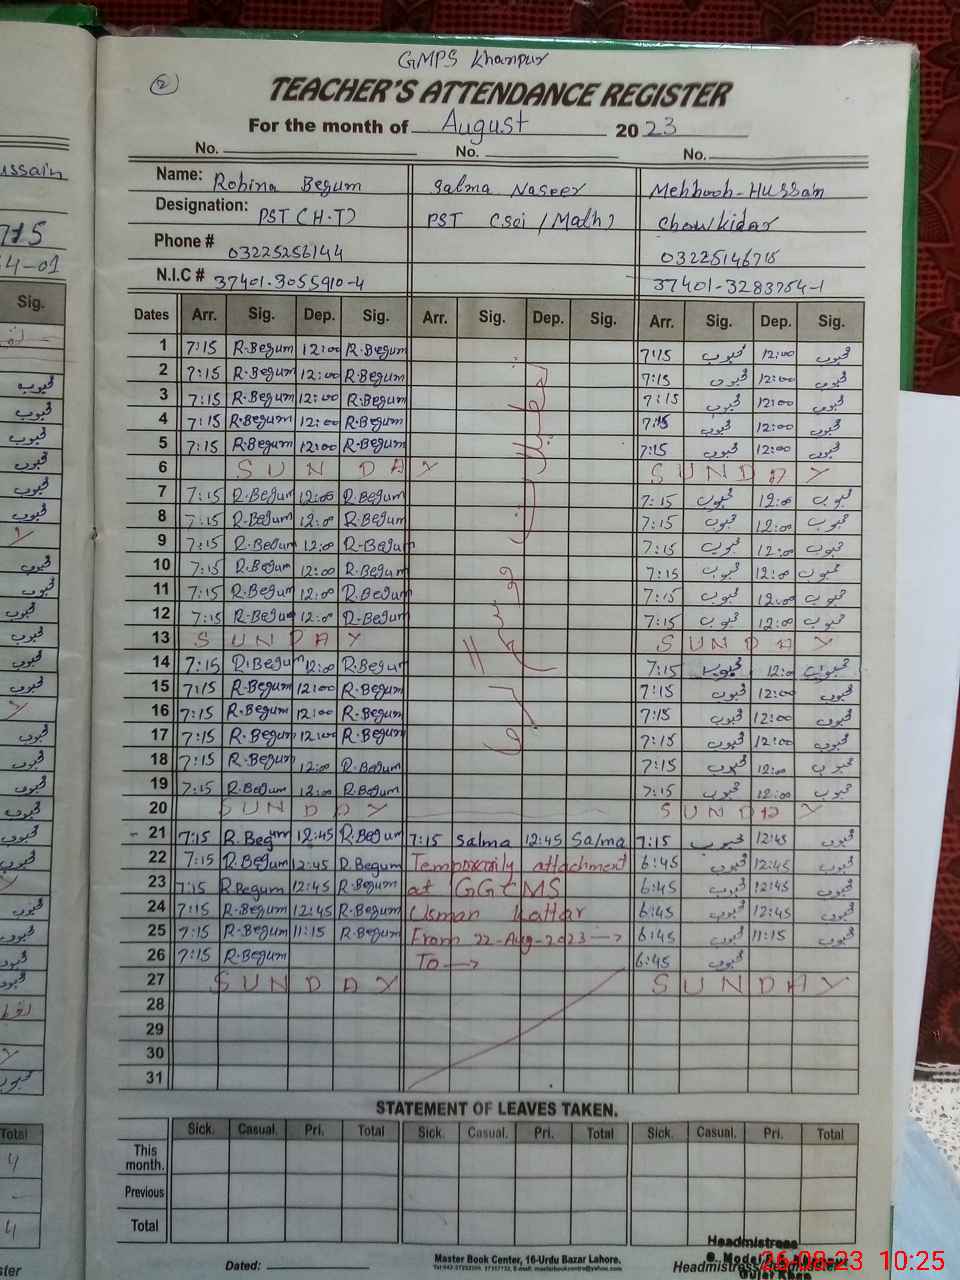 GMPS Khanpur
2
TEACHER'S ATTENDANCE REGISTER
For the month of August 2023
No. No. No.
Name: Robina Begum Salma Naseer Mehboob-Hussain
Designation: PST (H.T) PST (Sci/Math) Chowkidar
Phone # 03225256144 03225146715
N.I.C # 37401-3055910-4 37401-3283754-1
Dates Arr. Sig. Dep. Sig. Arr. Sig. Dep. Sig. Arr. Sig. Dep. Sig.
1 7:15 R.Begum 12:00 R.Begum 7:15 محبوب 12:00 محبوب
2 7:15 R.Begum 12:00 R.Begum 7:15 محبوب 12:00 محبوب
3 7:15 R.Begum 12:00 R.Begum 7:15 محبوب 12:00 محبوب
4 7:15 R.Begum 12:00 R.Begum 7:15 محبوب 12:00 محبوب
5 7:15 R.Begum 12:00 R.Begum 7:15 محبوب 12:00 محبوب
6 SUNDAY SUNDAY
7 7:15 R.Begum 12:00 R.Begum 7:15 محبوب 12:00 محبوب
8 7:15 R.Begum 12:00 R.Begum 7:15 محبوب 12:00 محبوب
9 7:15 R.Begum 12:00 R.Begum 7:15 محبوب 12:00 محبوب
10 7:15 R.Begum 12:00 R.Begum 7:15 محبوب 12:00 محبوب
11 7:15 R.Begum 12:00 R.Begum 7:15 محبوب 12:00 محبوب
12 7:15 R.Begum 12:00 R.Begum 7:15 محبوب 12:00 محبوب
13 SUNDAY SUNDAY
14 7:15 R.Begum 12:00 R.Begum 7:15 محبوب 12:00 محبوب
15 7:15 R.Begum 12:00 R.Begum 7:15 محبوب 12:00 محبوب
16 7:15 R.Begum 12:00 R.Begum 7:15 محبوب 12:00 محبوب
17 7:15 R.Begum 12:00 R.Begum 7:15 محبوب 12:00 محبوب
18 7:15 R.Begum 12:00 R.Begum 7:15 محبوب 12:00 محبوب
19 7:15 R.Begum 12:00 R.Begum 7:15 محبوب 12:00 محبوب
20 SUNDAY SUNDAY
21 7:15 R.Begum 12:45 R.Begum 7:15 Salma 12:45 Salma 7:15 محبوب 12:45 محبوب
22 7:15 R.Begum 12:45 R.Begum Temporarily attachment 6:45 محبوب 12:45 محبوب
23 7:15 R.Begum 12:45 R.Begum at GGCMS 6:45 محبوب 12:45 محبوب
24 7:15 R.Begum 12:45 R.Begum Usman Kattar 6:45 محبوب 12:45 محبوب
25 7:15 R.Begum 11:15 R.Begum From 22-Aug-2023 → 6:45 محبوب 11:15 محبوب
26 7:15 R.Begum To → 6:45 محبوب
27 SUNDAY SUNDAY
28
29
30
31
STATEMENT OF LEAVES TAKEN.
Sick. Casual. Pri. Total Sick. Casual. Pri. Total Sick. Casual. Pri. Total
This month.
Previous
Total
Headmistress
Dated: Master Book Center, 16-Urdu Bazar Lahore. Headmistress/Headmaster
26-08-23 10:25